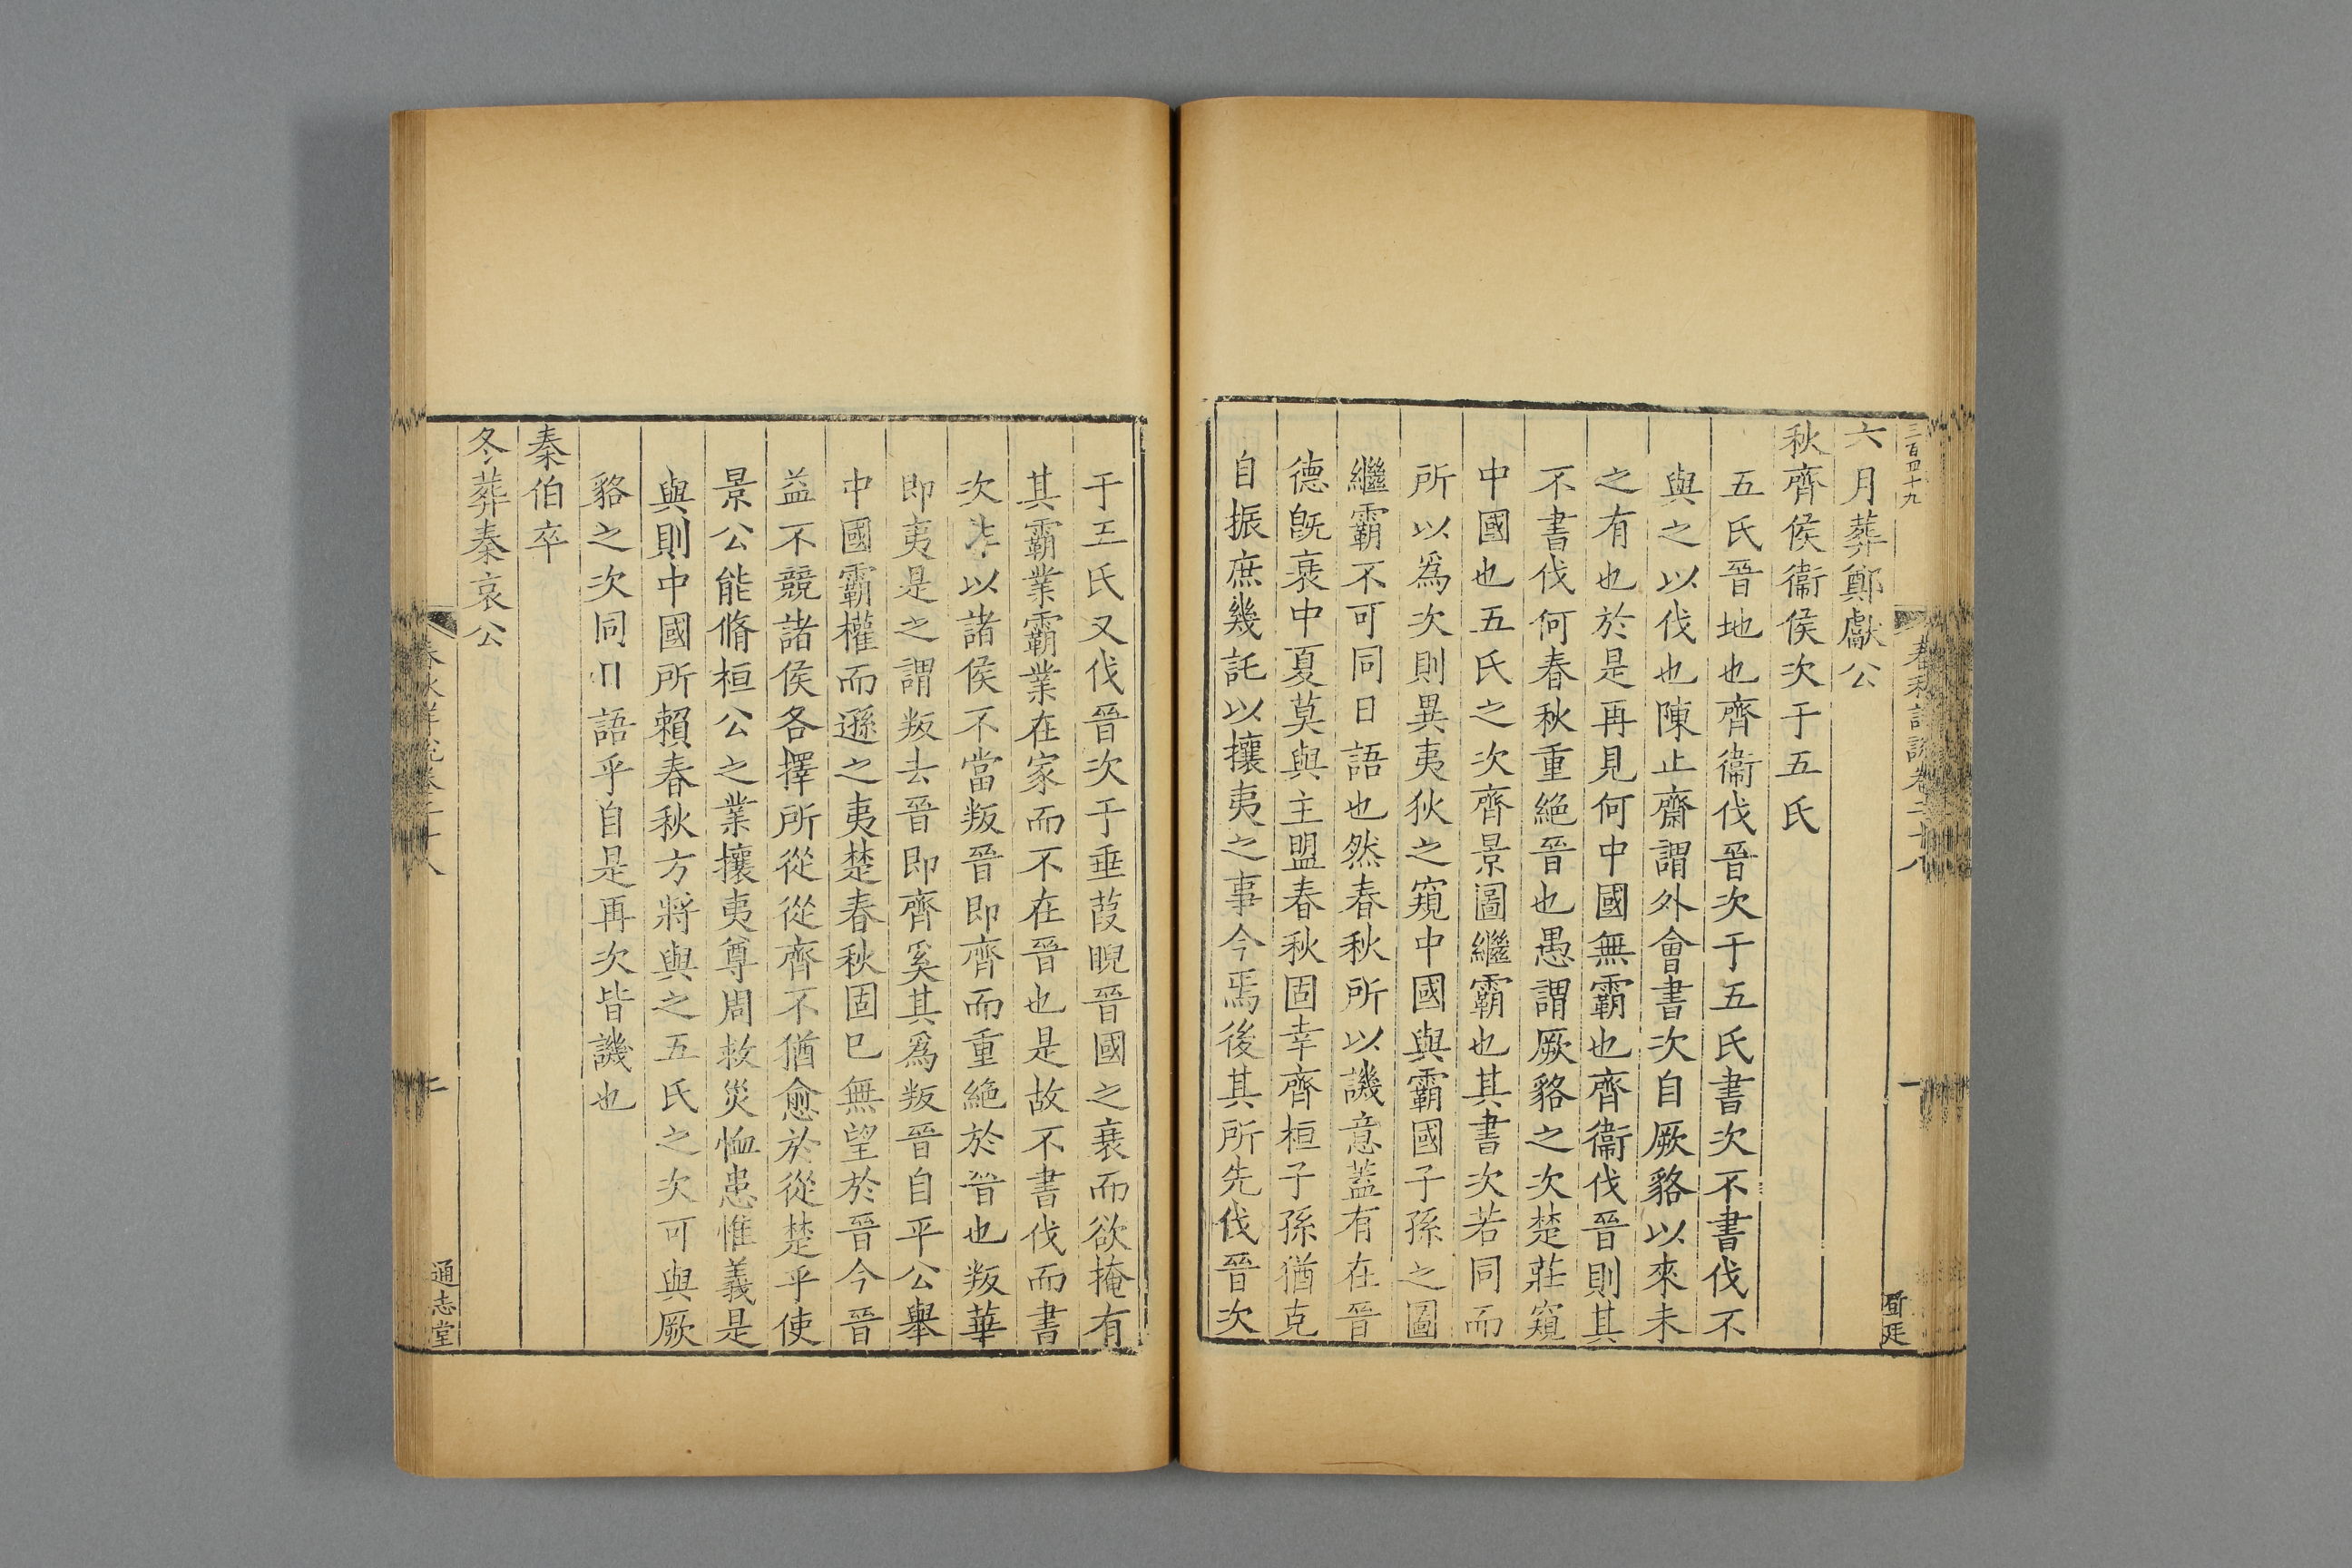 三百四十九
六月葬鄭獻公
秋齊侯衞侯次于五氏
五氏晉地也齊衞伐晉次于五氏書次不書伐不
與之以伐也陳止齋謂外會書次自厥貉以來未
之有也於是再見何中國無霸也齊衞伐晉則其
不書伐何春秋重絶晉也愚謂厥貉之次楚莊窺
中國也五氏之次齊景圖繼霸也其書次若同而
所以爲次則異夷狄之窺中國與霸國子孫之圖
繼霸不可同日語也然春秋所以譏意蓋有在晉
德旣衰中夏莫與主盟春秋固幸齊桓子孫猶克
自振庶幾託以攘夷之事今焉後其所先伐晉次
于五氏又伐晉次于垂葭睨晉國之衰而欲掩有
其霸業霸業在家而不在晉也是故不書伐而書
次 以諸侯不當叛晉即齊而重絶於晉也叛華
即夷是之謂叛去晉即齊奚其爲叛晉自平公舉
中國霸權而遜之夷楚春秋固已無望於晉今晉
益不競諸侯各擇所從從齊不猶愈於從楚乎使
景公能脩桓公之業攘夷尊周救災恤患惟義是
與則中國所賴春秋方將與之五氏之次可與厥
貉之次同日語乎自是再次皆譏也
秦伯卒
冬葬秦哀公
春秋詳說卷二十八
二
通志堂